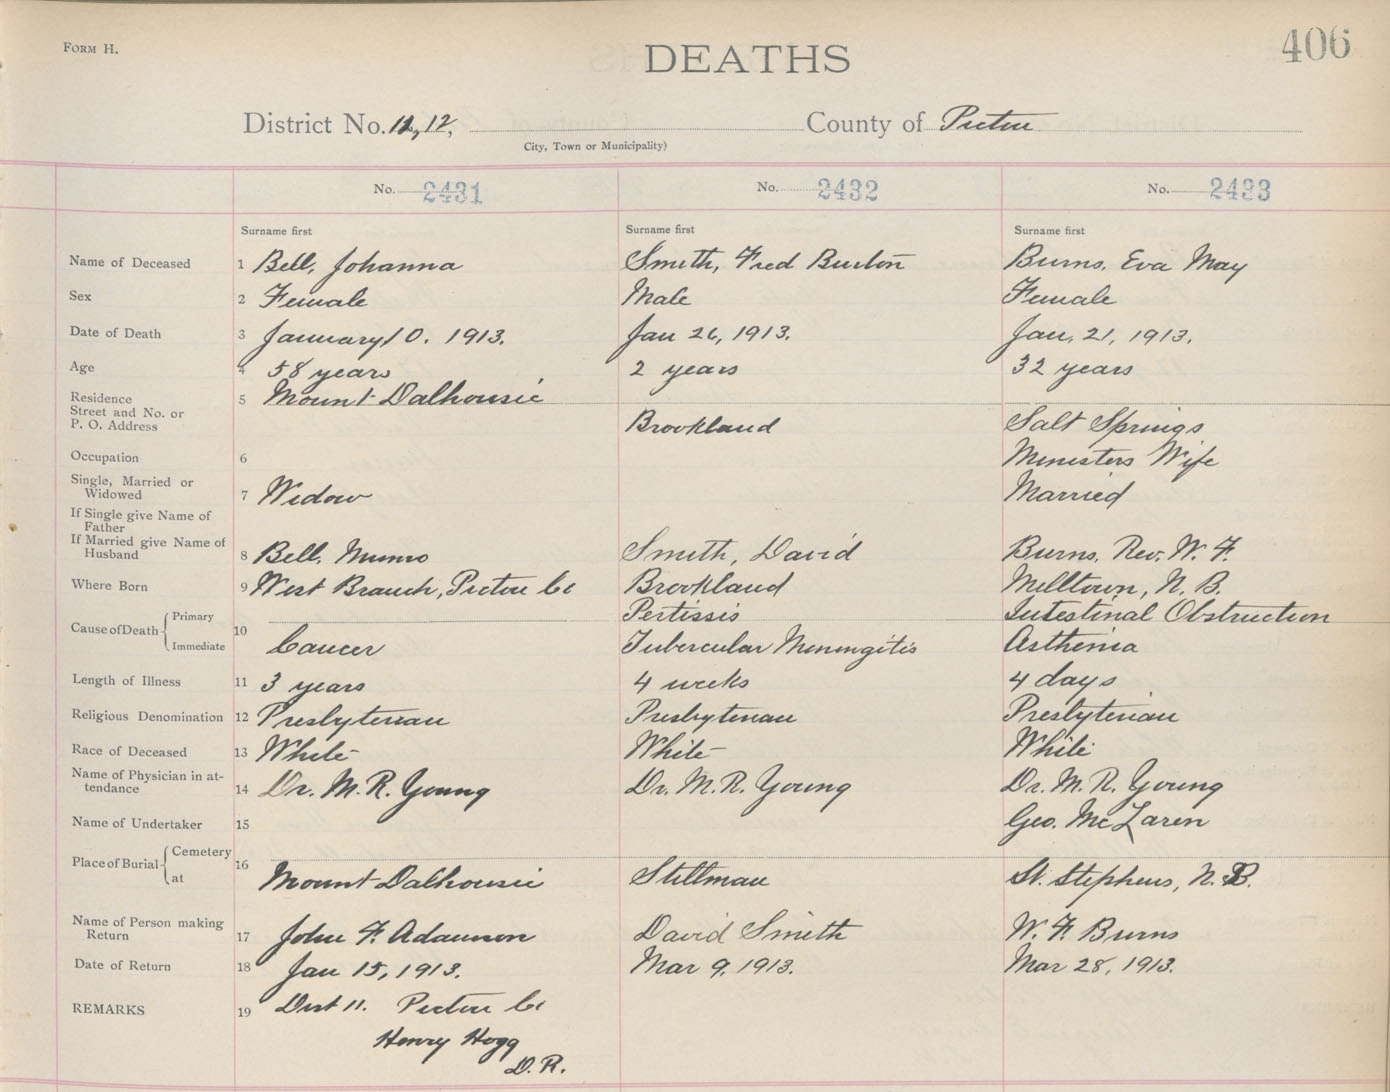 FORM H.
DEATHS
406
District No. 11, 12, County of Pictou
City, Town or Municipality)
No. 2431 No. 2432 No. 2433
Surname first Surname first Surname first
Name of Deceased 1 Bell, Johanna Smith, Fred Burton Burns, Eva May
Sex 2 Female Male Female
Date of Death 3 January 10. 1913. Jan 26, 1913. Jan. 21, 1913.
Age 4 58 years 2 years 32 years
Residence Street and No. or P. O. Address 5 Mount Dalhousie Brookland Salt Springs
Occupation 6 Ministers Wife
Single, Married or Widowed 7 Widow Married
If Single give Name of Father
If Married give Name of Husband 8 Bell, Munro Smith, David Burns, Rev. W. F.
Where Born 9 West Branch, Pictou Co Brookland Milltown, N. B.
Cause of Death Primary 10 Pertissis Intestinal Obstruction
Immediate Cancer Tubercular Meningitis Asthenia
Length of Illness 11 3 years 4 weeks 4 days
Religious Denomination 12 Presbyterian Presbyterian Presbyterian
Race of Deceased 13 White White White
Name of Physician in attendance 14 Dr. M. R. Young Dr. M. R. Young Dr. M. R. Young
Name of Undertaker 15 Geo. McLaren
Place of Burial Cemetery at 16 Mount Dalhousie Stillman St. Stephens, N. B.
Name of Person making Return 17 John F. Adamson David Smith W. F. Burns
Date of Return 18 Jan 15, 1913. Mar 9, 1913. Mar 28, 1913.
REMARKS 19 Dist 11. Pictou Co
Henry Hogg
D. R.